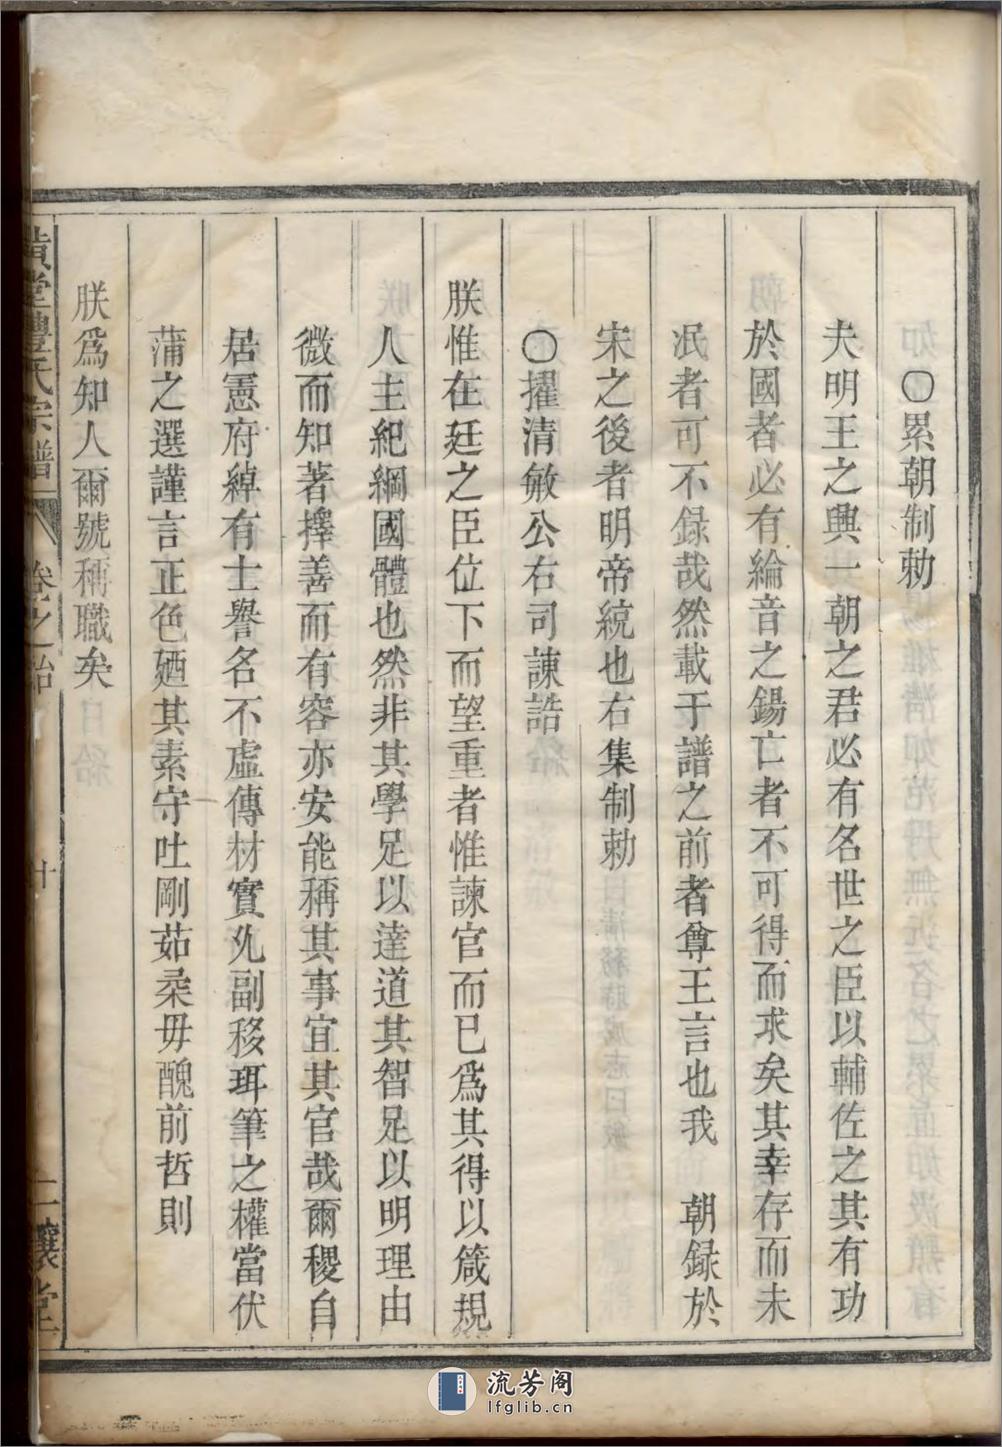 〇累朝制勅
夫明王之興一朝之君必有名世之臣以輔佐之其有功
於國者必有綸音之錫亡者不可得而求矣其幸存而未
泯者可不録哉然載于譜之前者尊王言也我　朝録於
宋之後者明帝統也右集制勅
〇擢清敏公右司諫誥
朕惟在廷之臣位下而望重者惟諫官而已爲其得以箴規
人主紀綱國體也然非其學足以達道其智足以明理由
微而知著擇善而有容亦安能稱其事宜其官哉爾稷自
居憲府綽有士譽名不虛傳材實允副移珥筆之權當伏
蒲之選謹言正色廼其素守吐剛茹柔毋醜前哲則
朕爲知人爾號稱職矣
黄堂豊氏宗譜　卷之
流芳阁
lfglib.cn